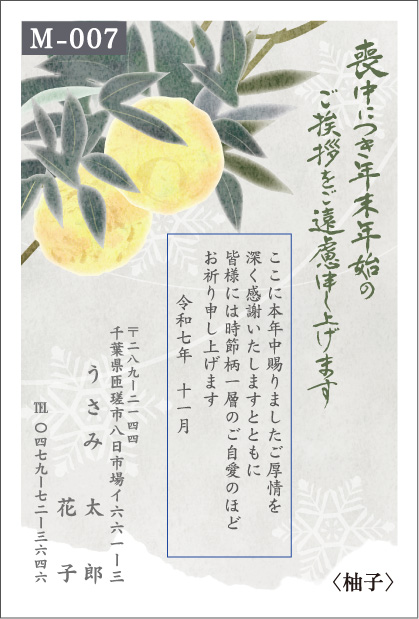 M-007
喪中につき年末年始の
ご挨拶をご遠慮申し上げます
ここに本年中賜りましたご厚情を
深く感謝いたしますとともに
皆様には時節柄一層のご自愛のほど
お祈り申し上げます
令和七年　十一月
〒二八九ー二一四四
千葉県匝瑳市八日市場イ六六一ー三
うさみ　太　郎
花　子
℡ 〇四七九ー七二ー三六四六
〈柚子〉